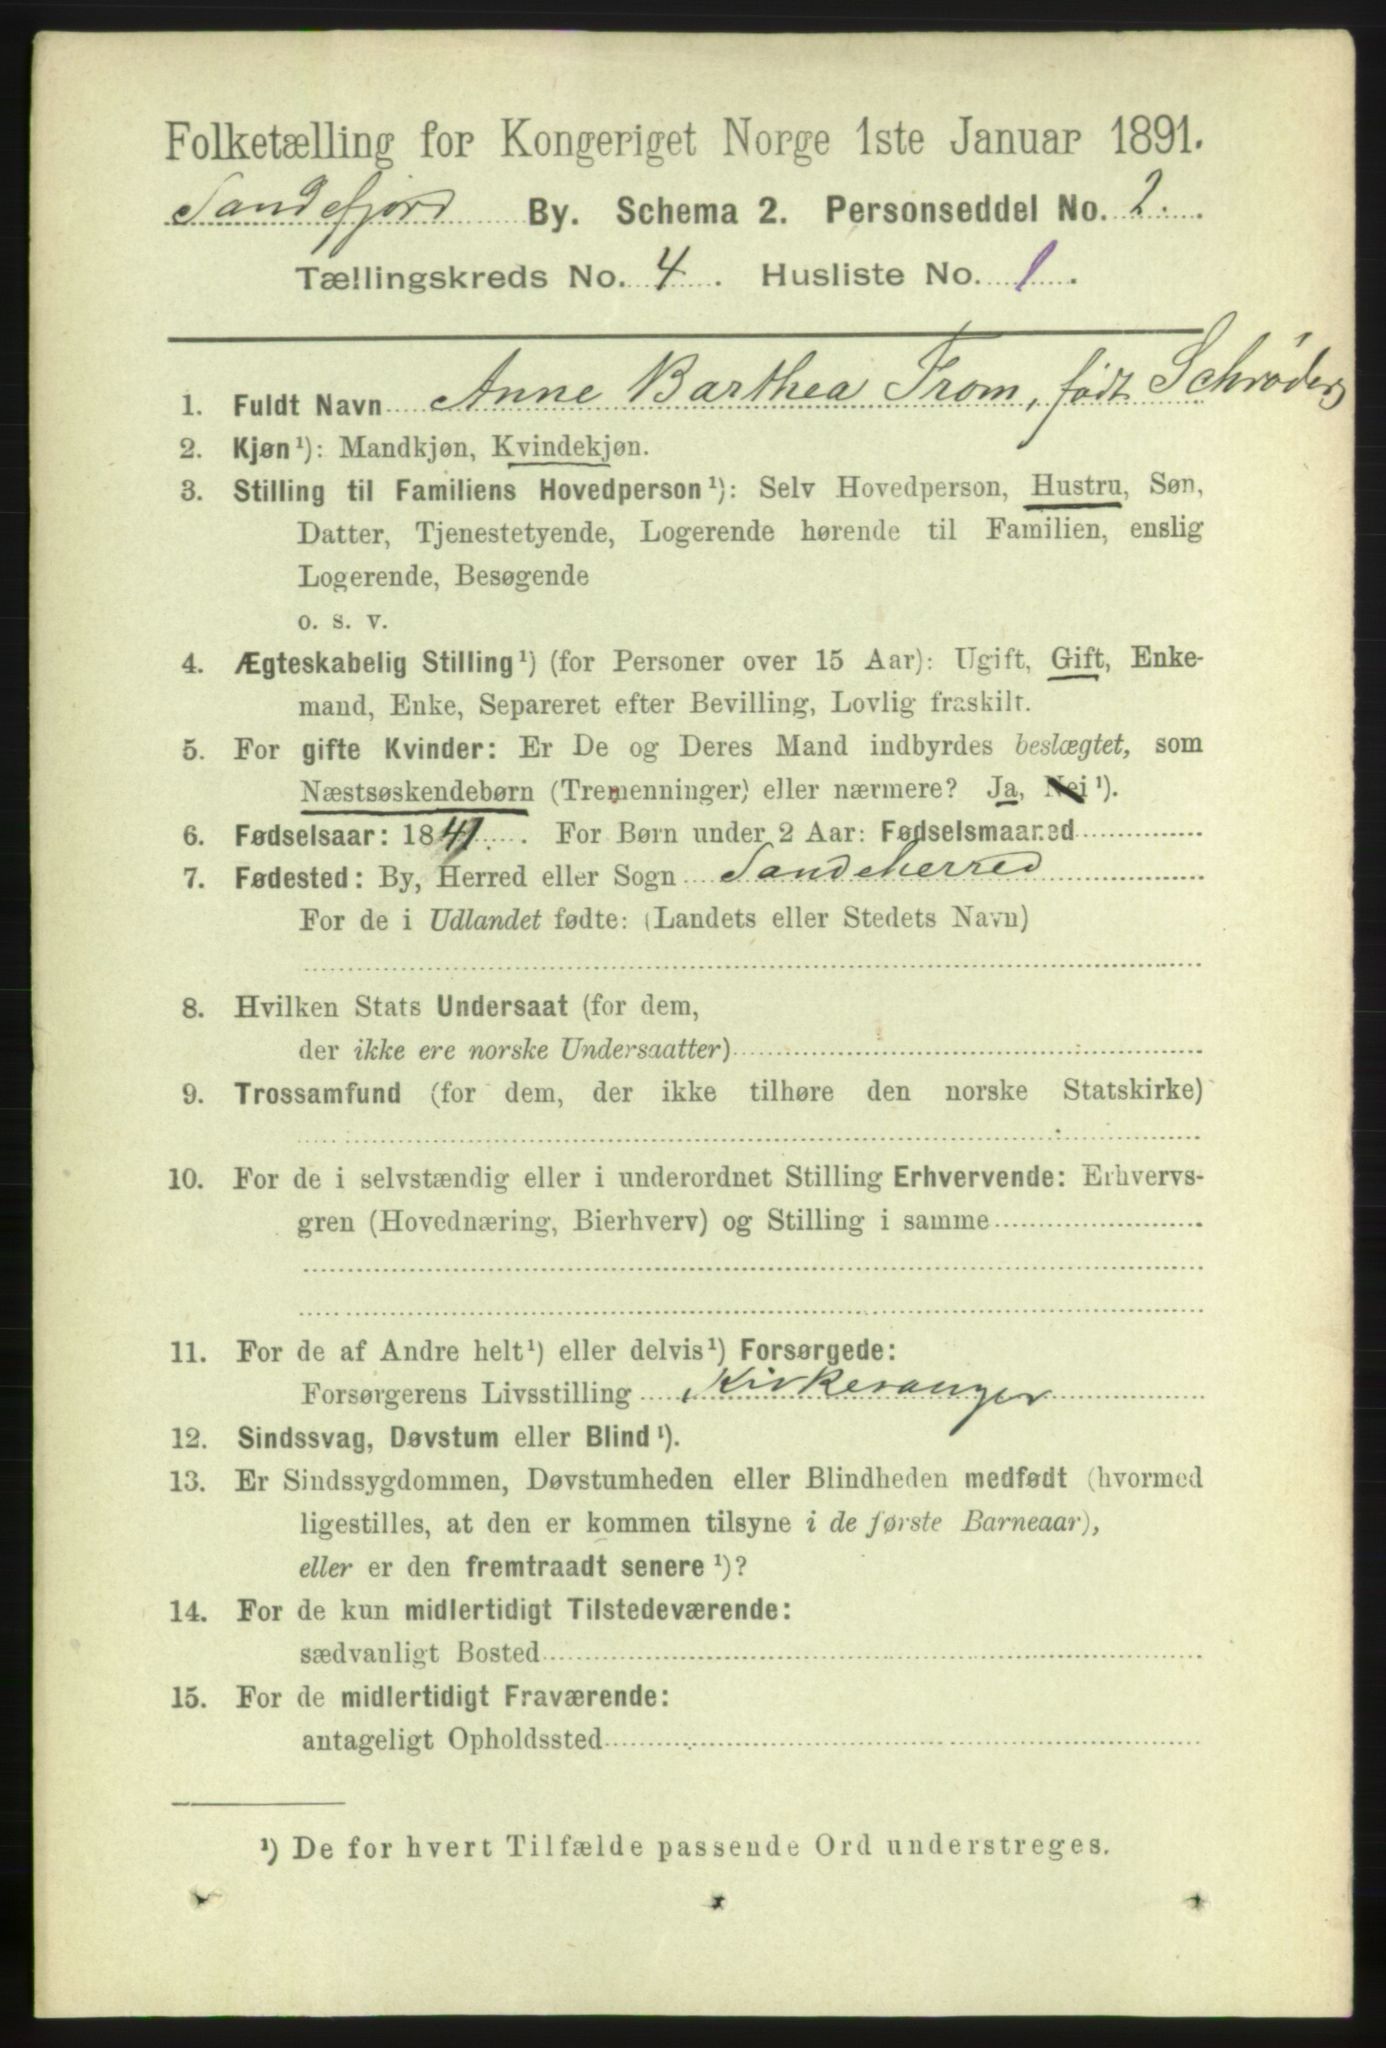 Folketælling for Kongeriget Norge 1ste Januar 1891.
Sandefjord By. Schema 2. Personseddel No. 2.
Tællingskreds No. 4. Husliste No. 1.
1. Fuldt Navn Anne Barthea From, født Schrøder
2. Kjøn¹): Mandkjøn, Kvindekjøn.
3. Stilling til Familiens Hovedperson¹): Selv Hovedperson, Hustru, Søn,
Datter, Tjenestetyende, Logerende hørende til Familien, enslig
Logerende, Besøgende
o. s. v.
4. Ægteskabelig Stilling¹) (for Personer over 15 Aar): Ugift, Gift, Enke-
mand, Enke, Separeret efter Bevilling, Lovlig fraskilt.
5. For gifte Kvinder: Er De og Deres Mand indbyrdes beslægtet, som
Næstsøskendebørn (Tremenninger) eller nærmere? Ja, Nei¹).
6. Fødselsaar: 1841. For Børn under 2 Aar: Fødselsmaaned
7. Fødested: By, Herred eller Sogn Sandeherred
For de i Udlandet fødte: (Landets eller Stedets Navn)
8. Hvilken Stats Undersaat (for dem,
der ikke ere norske Undersaatter)
9. Trossamfund (for dem, der ikke tilhøre den norske Statskirke)
10. For de i selvstændig eller i underordnet Stilling Erhvervende: Erhvervs-
gren (Hovednæring, Bierhverv) og Stilling i samme
11. For de af Andre helt¹) eller delvis¹) Forsørgede:
Forsørgerens Livsstilling Kirkesanger
12. Sindssvag, Døvstum eller Blind¹).
13. Er Sindssygdommen, Døvstumheden eller Blindheden medfødt (hvormed
ligestilles, at den er kommen tilsyne i de første Barneaar),
eller er den fremtraadt senere¹)?
14. For de kun midlertidigt Tilstedeværende:
sædvanligt Bosted
15. For de midlertidigt Fraværende:
antageligt Opholdssted
¹) De for hvert Tilfælde passende Ord understreges.